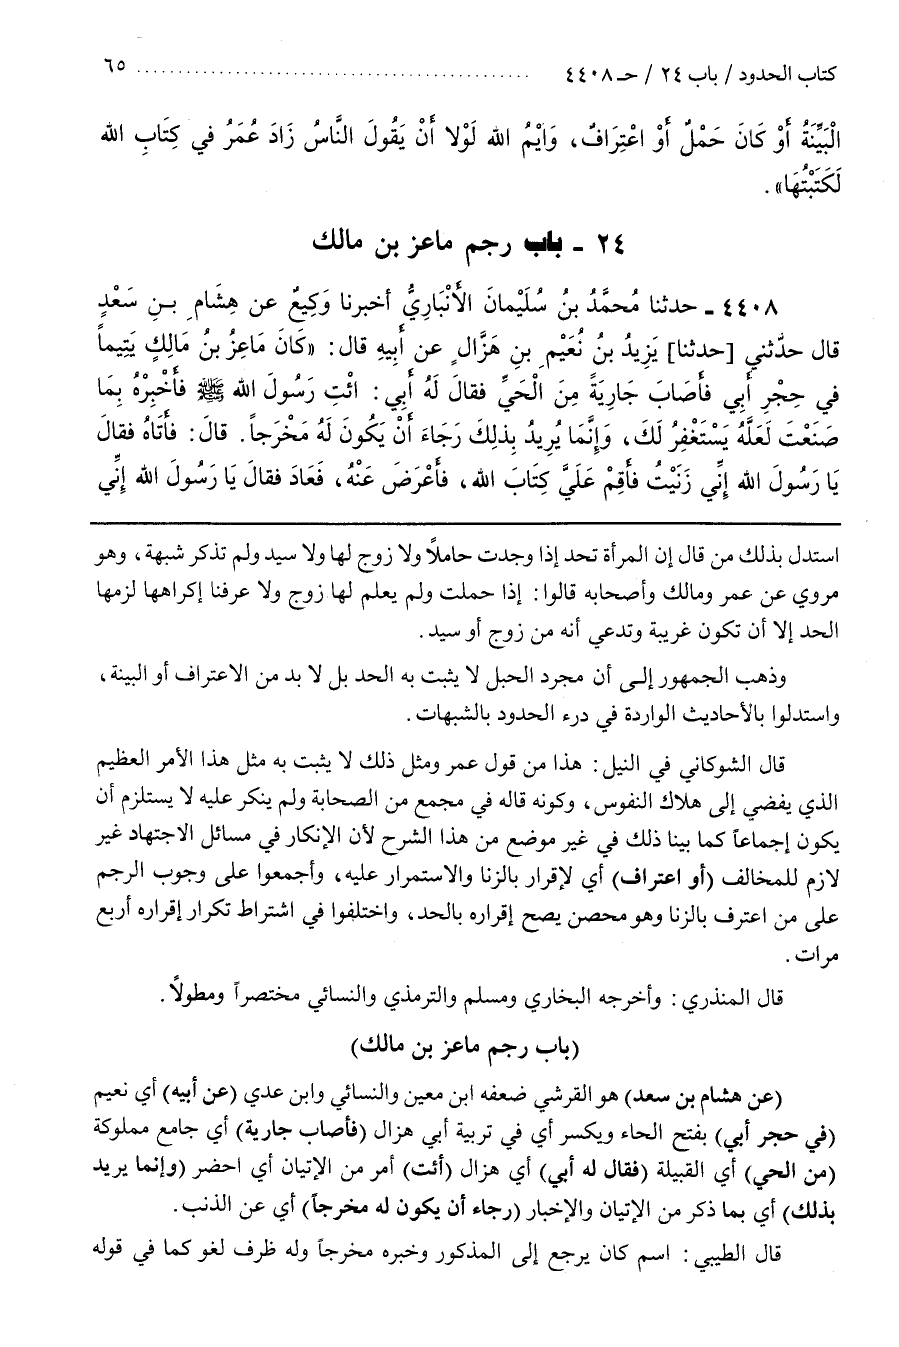 كتاب الحدود / باب ٢٤ / حـ ٤٤٠٨ ................................................ ٦٥
الْبَيِّنَةُ أَوْ كَانَ حَمْلٌ أَوْ اعْتِرَافٌ، وَايْمُ الله لَوْلا أَنْ يَقُولَ النَّاسُ زَادَ عُمَرُ في كِتَابِ الله
لَكَتَبْتُهَا».
٢٤ ـ باب رجم ماعز بن مالك
٤٤٠٨ ـ حدثنا مُحمَّدُ بنُ سُلَيْمانَ الأنْبَارِيُّ أخبرنا وَكِيعٌ عن هِشَامِ بـنِ سَعْدٍ
قال حدَّثني [حدثنا] يَزِيدُ بنُ نُعَيْمِ بنِ هَزَّالٍ عن أَبِيهِ قال: «كَانَ مَاعِزُ بنُ مَالِكٍ يَتِيماً
في حِجْرِ أَبِي فأَصَابَ جَارِيَةً مِنَ الْحَيِّ فقالَ لَهُ أَبِي: ائْتِ رَسُولَ الله ﷺ فَأَخْبِرْهُ بِمَا
صَنَعْتَ لَعَلَّهُ يَسْتَغْفِرُ لَكَ، وَإِنَّمَا يُرِيدُ بِذَلِكَ رَجَاءَ أَنْ يَكُونَ لَهُ مَخْرَجاً. قالَ: فأَتَاهُ فقالَ
يَا رَسُولَ الله إِنِّي زَنَيْتُ فأَقِمْ عَلَيَّ كِتَابَ الله، فأَعْرَضَ عَنْهُ، فَعَادَ فقال يَا رَسُولَ الله إِنِّي
استدل بذلك من قال إن المرأة تحد إذا وجدت حاملاً ولا زوج لها ولا سيد ولم تذكر شبهة، وهو
مروي عن عمر ومالك وأصحابه قالوا: إذا حملت ولم يعلم لها زوج ولا عرفنا إكراهها لزمها
الحد إلا أن تكون غريبة وتدعي أنه من زوج أو سيد.
وذهب الجمهور إلى أن مجرد الحبل لا يثبت به الحد بل لا بد من الاعتراف أو البينة،
واستدلوا بالأحاديث الواردة في درء الحدود بالشبهات.
قال الشوكاني في النيل: هذا من قول عمر ومثل ذلك لا يثبت به مثل هذا الأمر العظيم
الذي يفضي إلى هلاك النفوس، وكونه قاله في مجمع من الصحابة ولم ينكر عليه لا يستلزم أن
يكون إجماعاً كما بينا ذلك في غير موضع من هذا الشرح لأن الإنكار في مسائل الاجتهاد غير
لازم للمخالف (أو اعتراف) أي لإقرار بالزنا والاستمرار عليه، وأجمعوا على وجوب الرجم
على من اعترف بالزنا وهو محصن يصح إقراره بالحد، واختلفوا في اشتراط تكرار إقراره أربع
مرات.
قال المنذري: وأخرجه البخاري ومسلم والترمذي والنسائي مختصراً ومطولاً.
(باب رجم ماعز بن مالك)
(عن هشام بن سعد) هو القرشي ضعفه ابن معين والنسائي وابن عدي (عن أبيه) أي نعيم
(في حجر أبي) بفتح الحاء ويكسر أي في تربية أبي هزال (فأصاب جارية) أي جامع مملوكة
(من الحي) أي القبيلة (فقال له أبي) أي هزال (أئت) أمر من الإتيان أي احضر (وإنما يريد
بذلك) أي بما ذكر من الإتيان والإخبار (رجاء أن يكون له مخرجاً) أي عن الذنب.
قال الطيبي: اسم كان يرجع إلى المذكور وخبره مخرجاً وله ظرف لغو كما في قوله